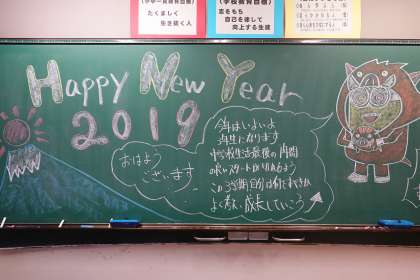 (学年・教育目標)
たくましく
生き抜く人
(学校教育目標)
志をもち
自己を律して
向上する生徒
Happy New Year
2019
おはよう
ございます
今年はいよいよ
3年生になります
中学校生活最後の1年間
の良いスタートがきれるよう
この3学期
よく考え、成長していこう